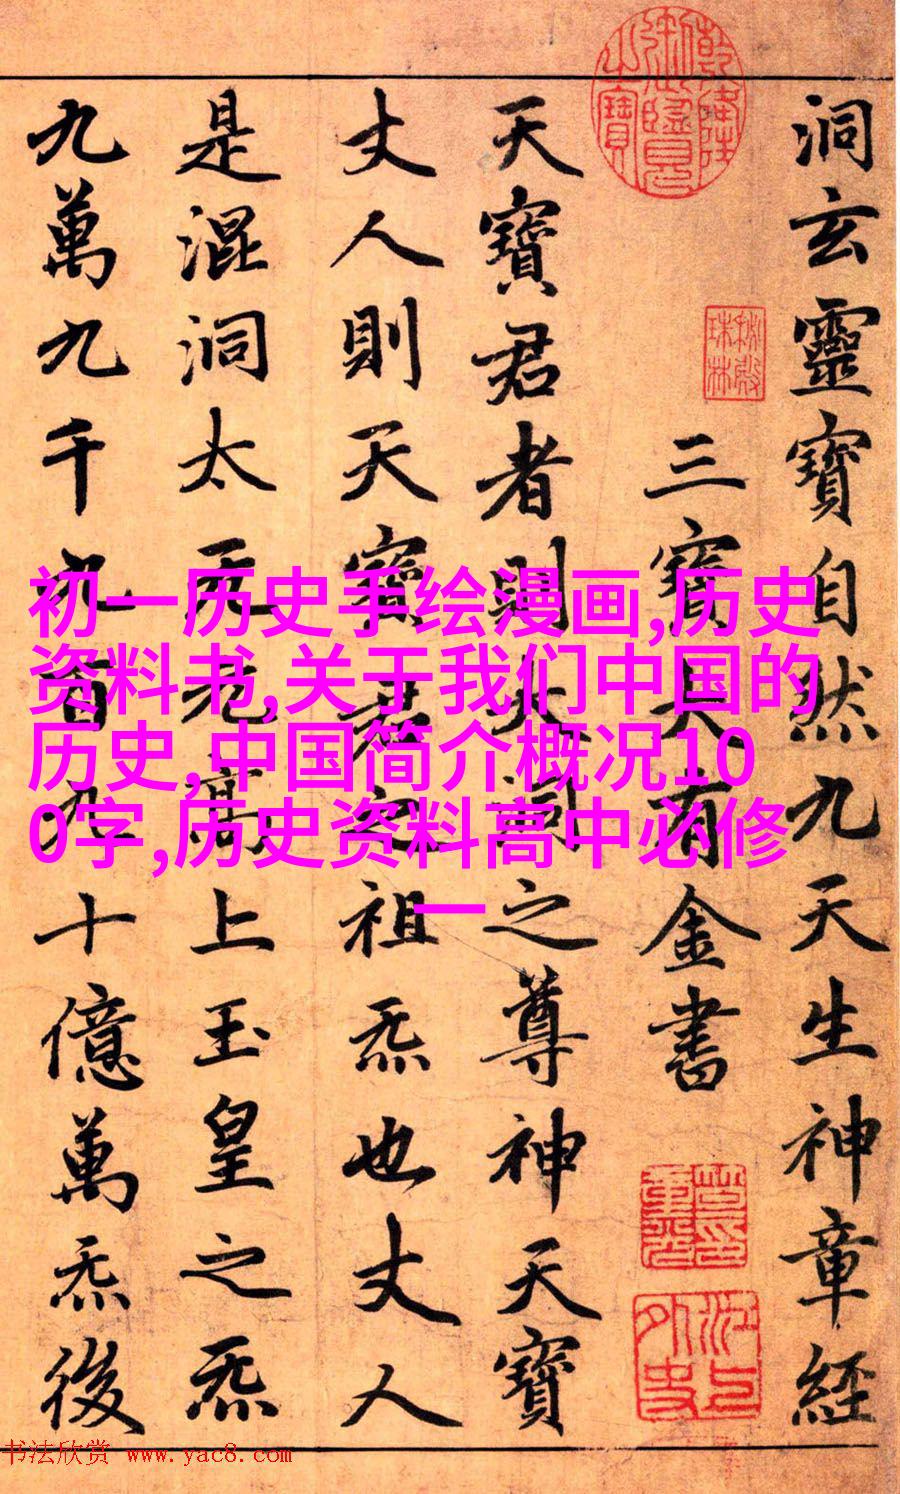 洞玄靈寶自然九天生神章經
三寶大有金書
天寶君者則大洞之尊神天寶
丈人則天寶君之祖炁也丈人
是混洞太无元高上玉皇之炁
九萬九千九百九十億萬炁後
乾隆御覽之寶
秋殿珠林
初一历史手绘漫画,历史
资料书,关于我们中国的
历史,中国简介概况10
0字,历史资料高中必修
一
书法欣赏 www.yac8.com